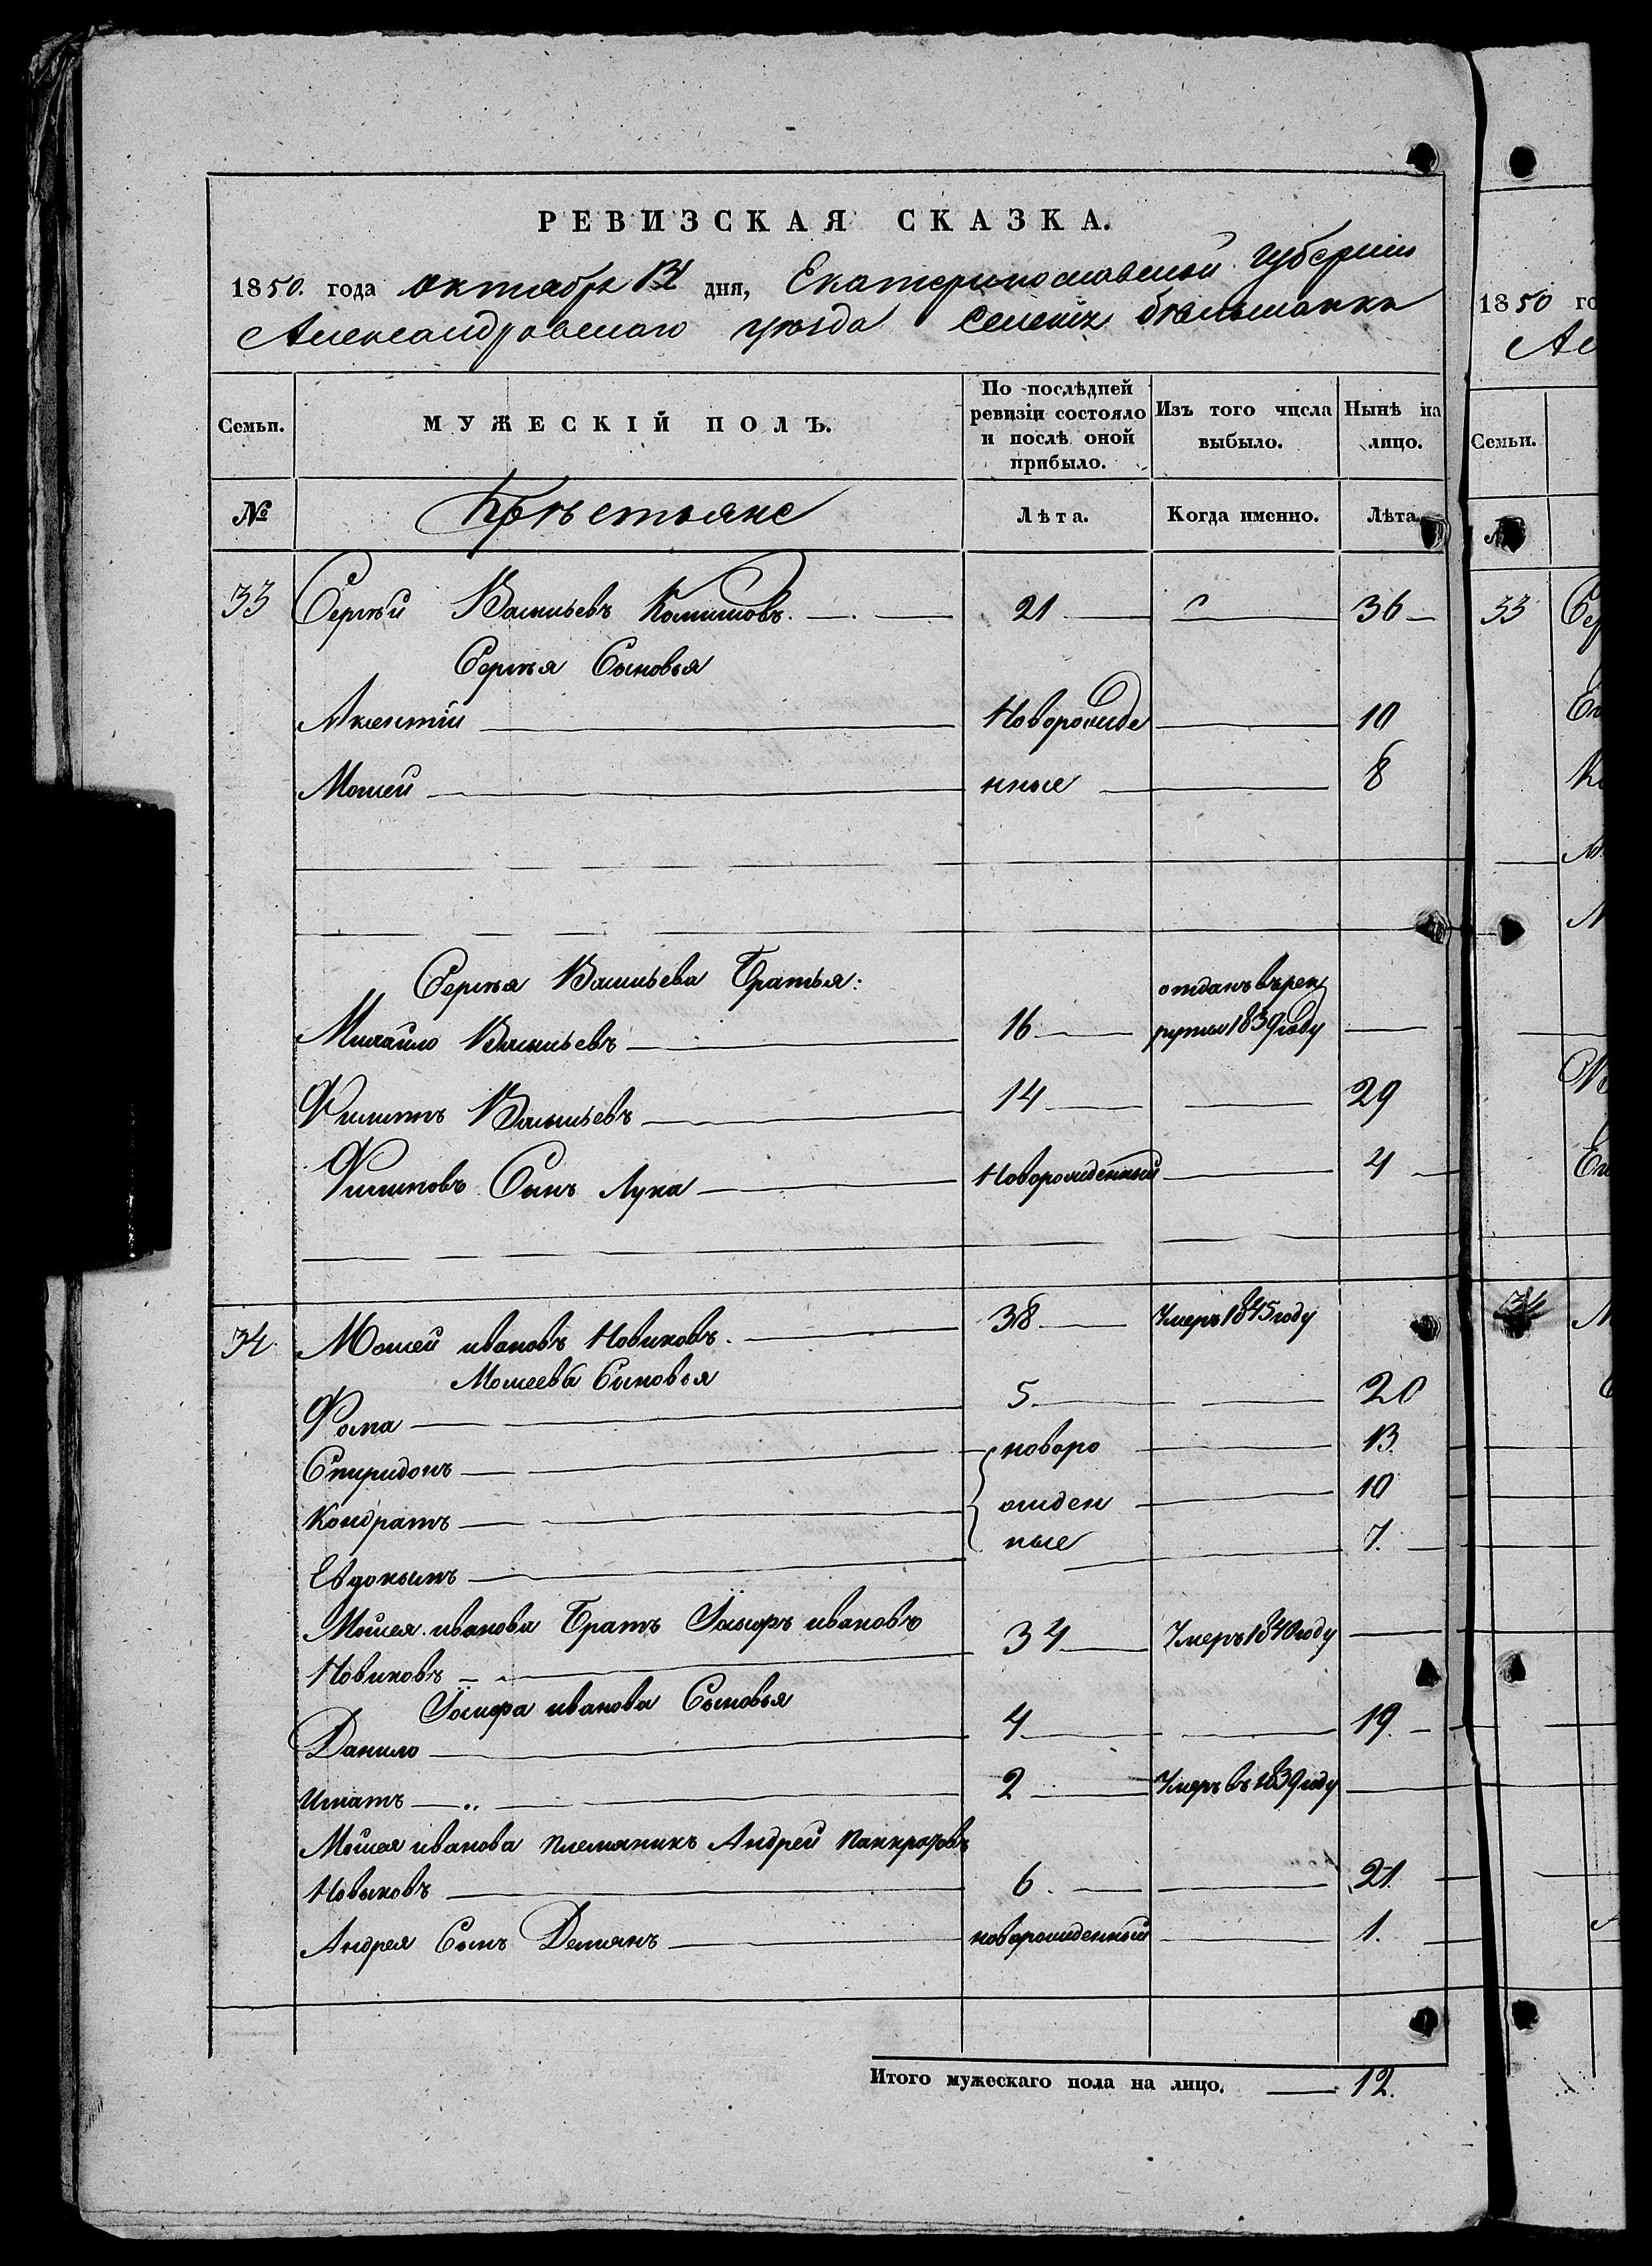 РЕВИЗСКАЯ СКАЗКА.
1850. года октября дня, Екатеринославской губернии
Александровскаго уезда селения белманки
Семьи.
МУЖЕСКІЙ ПОЛЪ.
По послѣдней ревизіи состояло и послѣ оной прибыло.
Изъ того числа выбыло.
Нынѣ на лицо.
№
Крѣстьяне
Лѣта.
Когда именно.
Лѣта.
33 Сергѣй Васильевъ 21 36
Сергѣя Сыновья
Аксентій Новорожде 10
Моисей нные 8
Сергѣя Васильева Братья:
отданъ въ рек
Михайло Васильевъ 16 руты 1839 году
Филиппъ Васильевъ 14 29
Филиповъ Сынъ Лука Новорожденный 4
34. Моисей ивановъ Новиковъ. 38 Умеръ 1845 году
Моисеева Сыновья
Фома 5 20
Спиридонъ новоро 13.
Кондратъ жден 10
Евдокымъ ные 7.
Моисея иванова Братъ Іосифъ ивановъ
Новиковъ 34 Умеръ 1840 году
Іосифа иванова Сыновья
Данило 4 19.
Игнатъ 2 Умеръ въ 1839 году
Моисея иванова племяникъ Андрей панкратовъ
Новыковъ 6. 21.
Андрея Сынъ Демянъ новорожденный 1.
Итого мужескаго пола на лицо. 12.
1850
Семьи.
33